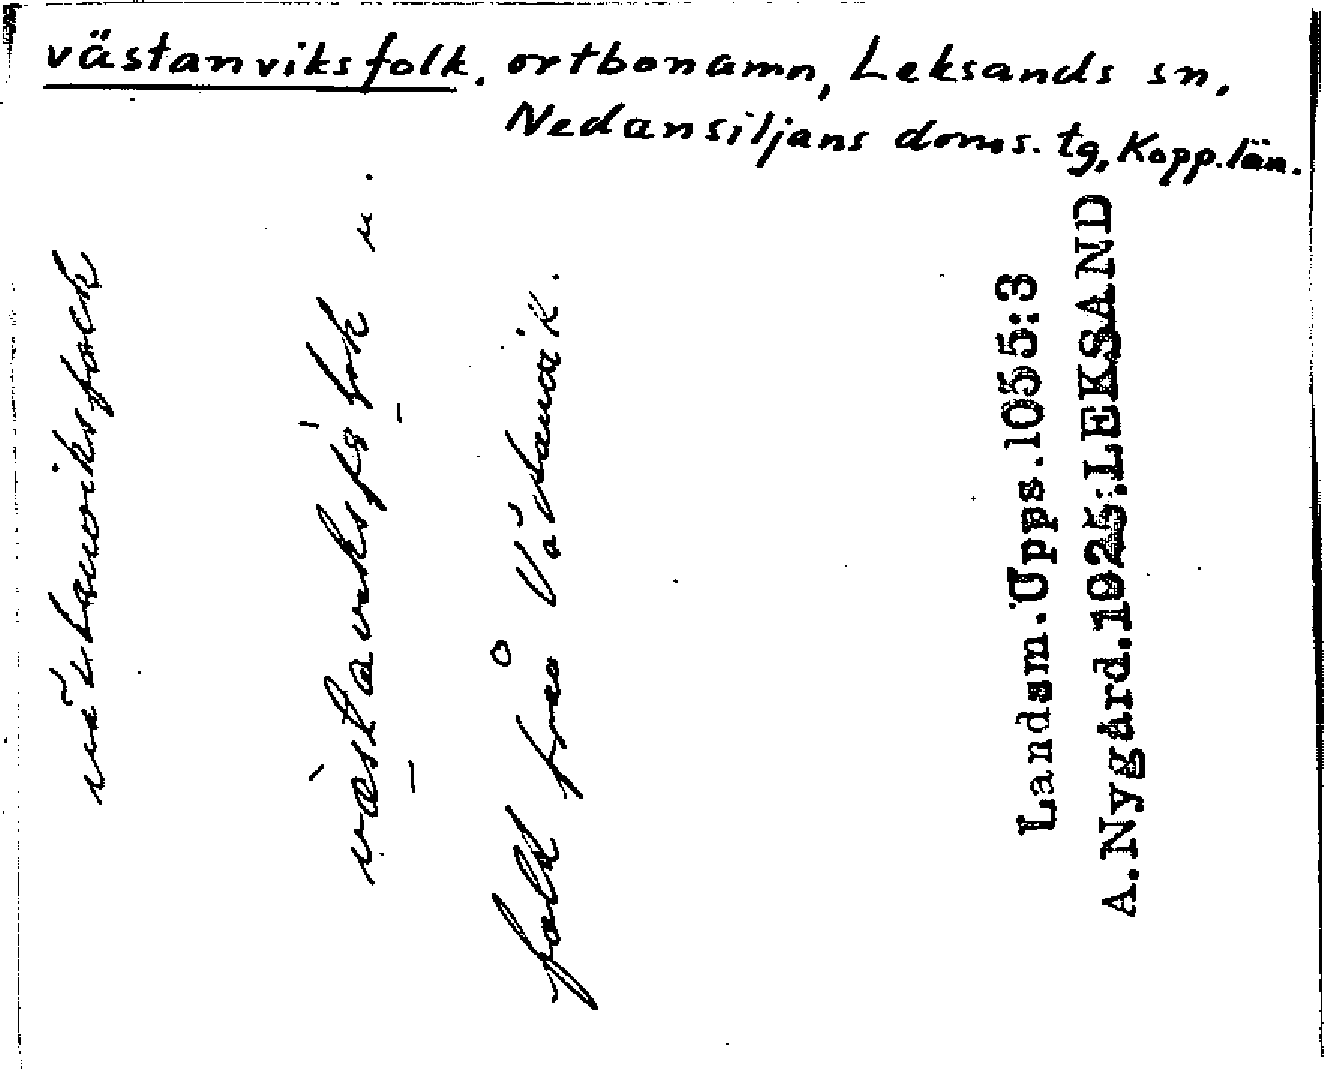 västanviksfolk. ortbonamn, Leksands sn,
Nedansiljans doms. tg, Kopp. län.
västanviksfolk
n.
folk från Västanvik.
Landsm. Upps. 1055:3
A. Nygård. 1925; LEKSAND